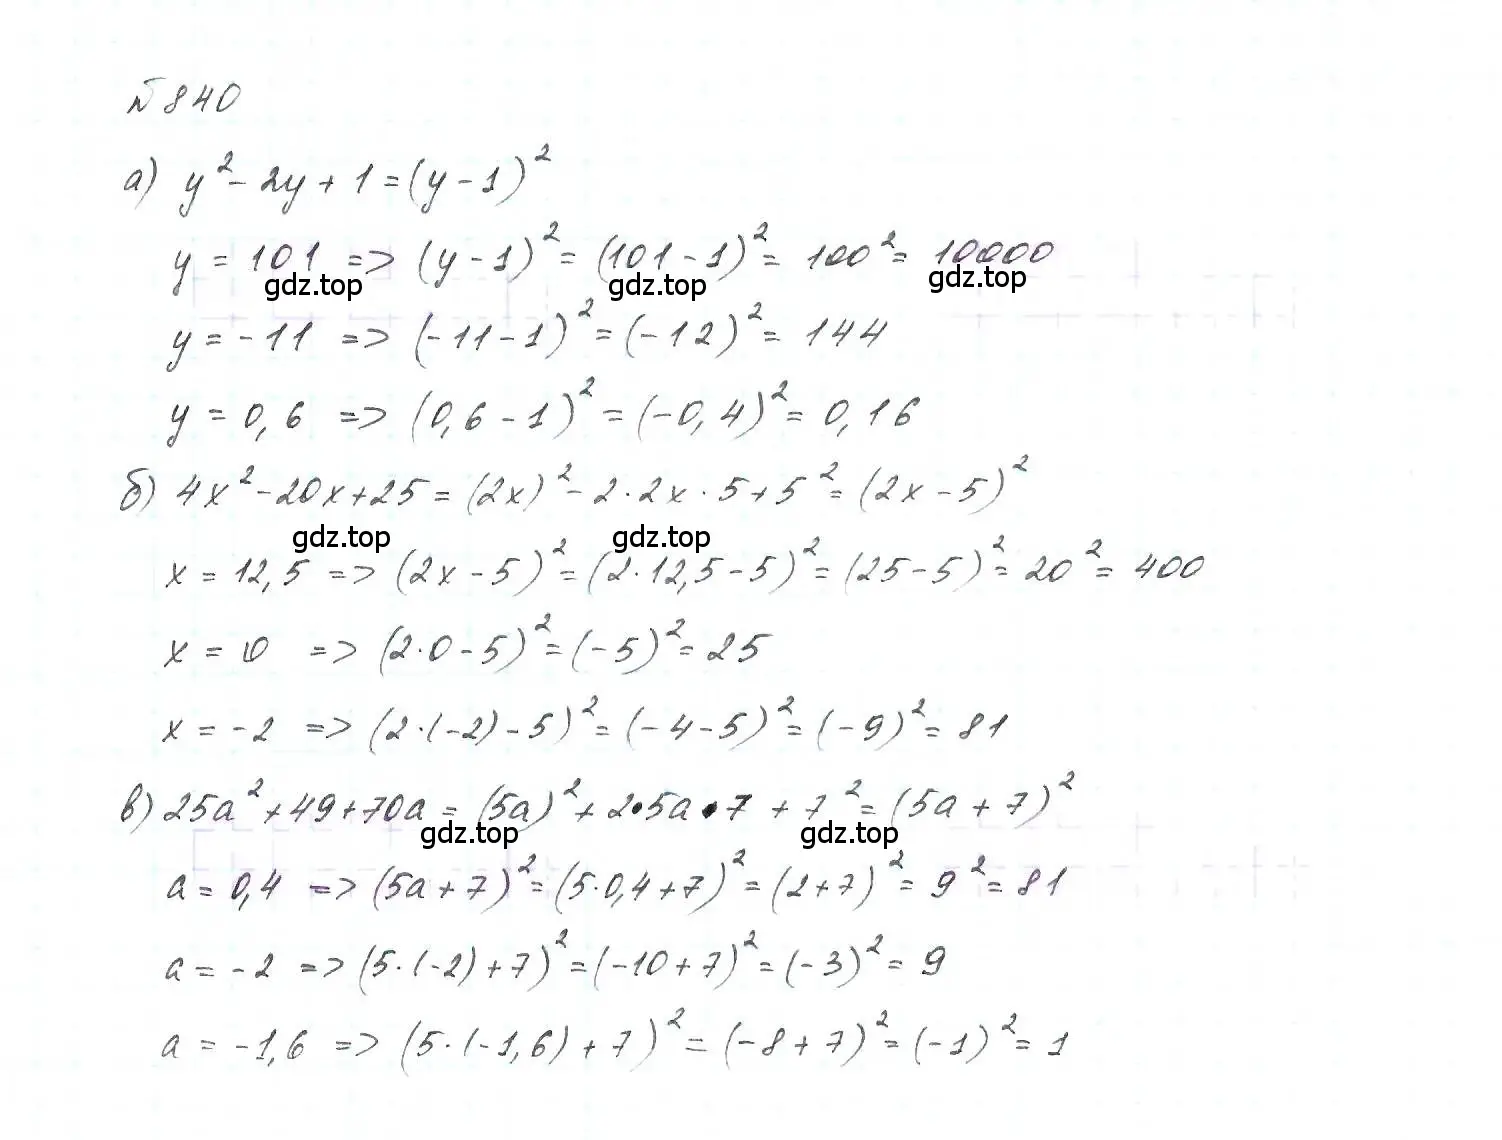 № 840
а) y² - 2y + 1 = (y - 1)²
y = 101 => (y - 1)² = (101 - 1)² = 100² = 10000
gdz.top gdz.top gdz.top
y = -11 => (-11 - 1)² = (-12)² = 144
y = 0,6 => (0,6 - 1)² = (-0,4)² = 0,16
б) 4x² - 20x + 25 = (2x)² - 2 · 2x · 5 + 5² = (2x - 5)²
gdz.top gdz.top
x = 12,5 => (2x - 5)² = (2 · 12,5 - 5)² = (25 - 5)² = 20² = 400
x = 0 => (2 · 0 - 5)² = (-5)² = 25
x = -2 => (2 · (-2) - 5)² = (-4 - 5)² = (-9)² = 81
в) 25a² + 49 + 70a = (5a)² + 2 · 5a · 7 + 7² = (5a + 7)²
gdz.top gdz.top
a = 0,4 => (5a + 7)² = (5 · 0,4 + 7)² = (2 + 7)² = 9² = 81
a = -2 => (5 · (-2) + 7)² = (-10 + 7)² = (-3)² = 9
a = -1,6 => (5 · (-1,6) + 7)² = (-8 + 7)² = (-1)² = 1